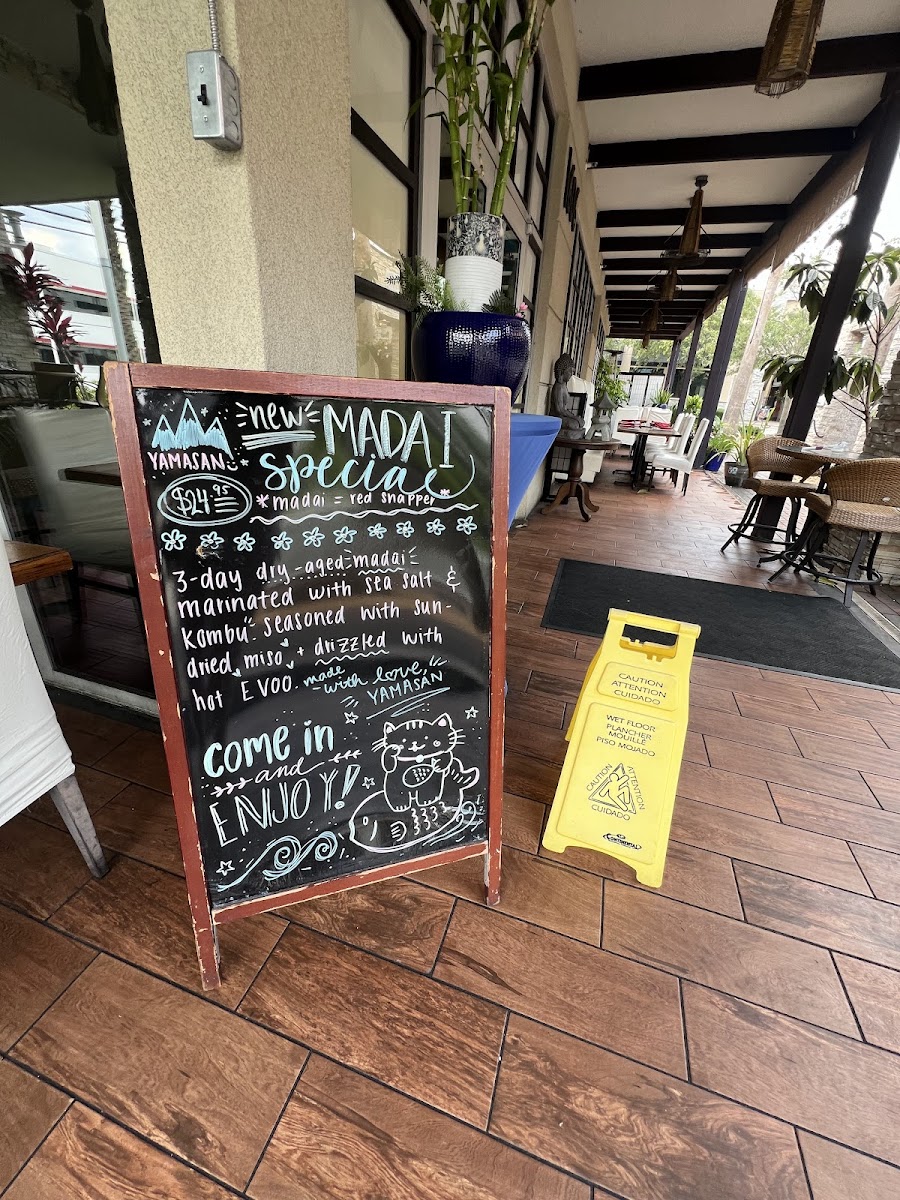 new MADAI
YAMASAN
special
$24.95
*madai = red snapper*
3-day dry-aged madai
marinated with sea salt &
kombu. seasoned with sun-
dried miso + drizzled with
hot EVOO. made with love, YAMASAN
come in
and
ENJOY!
CAUTION
ATTENTION
CUIDADO
WET FLOOR
PLANCHER
MOUILLÉ
PISO MOJADO
CAUTION
ATTENTION
CUIDADO